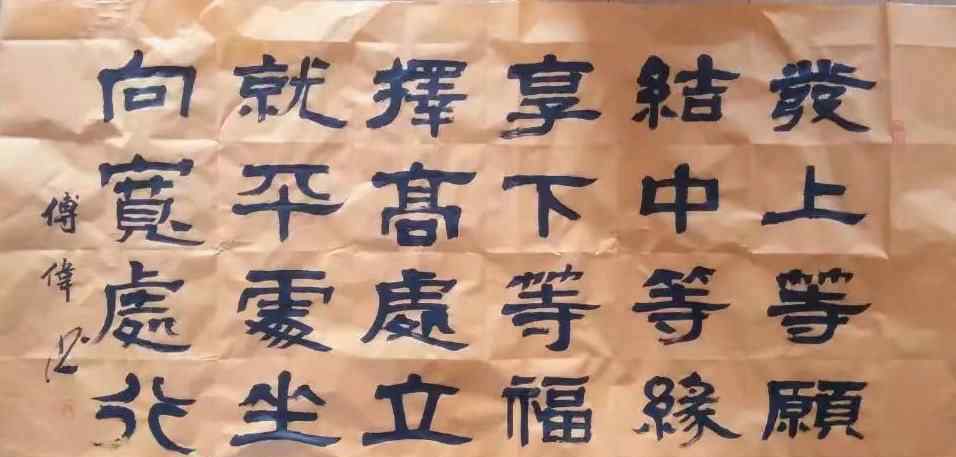 發上等願
結中等緣
享下等福
擇高處立
就平處坐
向寬處行
傅偉